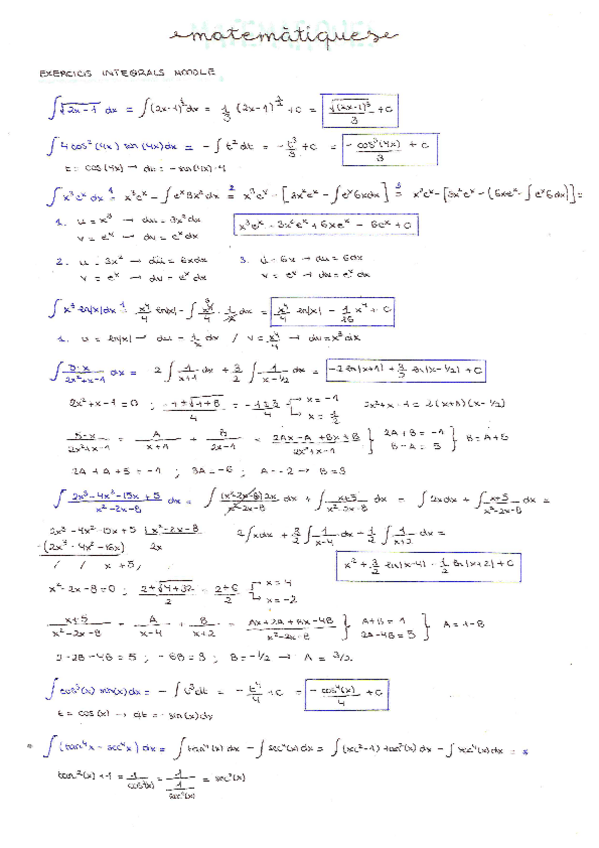 matemàtiques
EXERCICIS INTEGRALS MOODLE
∫√(2x-1) dx = ∫(2x-1)^½ dx = 1/3 (2x-1)^(3/2) + C = √(2x-1)³/3 + C
∫4cos²(4x) sin(4x)dx = -∫t²dt = -t³/3 + C = -cos³(4x)/3 + C
t = cos(4x) → dt = -sin(4x)·4
∫x³eˣdx = x³eˣ - ∫eˣ3x²dx = x³eˣ - [3x²eˣ - ∫eˣ6xdx] = x³eˣ - [3x²eˣ - (6xeˣ - ∫eˣ6dx)] =
1. u = x³ → du = 3x²dx
v = eˣ → dv = eˣdx
x³eˣ - 3x²eˣ + 6xeˣ - 6eˣ + C
2. u = 3x² → du = 6xdx 3. u = 6x → du = 6dx
v = eˣ → dv = eˣdx v = eˣ → dv = eˣdx
∫x³ ln|x|dx = x⁴/4 ln|x| - ∫ x⁴/4 · 1/x dx = x⁴/4 ln|x| - 1/16 x⁴ + C
1. u = ln|x| → du = 1/x dx / v = x⁴/4 → dv = x³dx
∫ 5-x/2x²+x-1 dx = 2∫ 1/x+1 dx + 3/2 ∫ 1/x-1/2 dx = -2 ln|x+1| + 3/2 ln|x-1/2| + C
2x²+x-1=0 ; -1±√1+8/4 = -1±3/4 → x = -1 → x = 1/2 2x²+x-1 = 2(x+1)(x-1/2)
5-x/2x²+x-1 = A/x+1 + B/2x-1 = 2Ax-A+Bx+B/2x²+x-1 } 2A+B=-1 B-A=5 } B=A+5
2A+A+5=-1 ; 3A=-6 ; A=-2 → B=3
∫ 2x³-4x²-15x+5/x²-2x-8 dx = ∫ (x²-2x-8)2x/x²-2x-8 dx + ∫ x+5/x²-2x-8 dx = ∫2xdx + ∫ x+5/x²-2x-8 dx =
2x³-4x²-15x+5 | x²-2x-8 2∫xdx + 3/2 ∫ 1/x-4 dx - 1/2 ∫ 1/x+2 dx =
-(2x³-4x²-16x) 2x
/ / x+5,
x² + 3/2 ln|x-4| - 1/2 ln|x+2| + C
x²-2x-8=0 ; 2±√4+32/2 = 2±6/2 → x=4 → x=-2
x+5/x²-2x-8 = A/x-4 + B/x+2 = Ax+2A+Bx-4B/x²-2x-8 } A+B=1 2A-4B=5 } A=1-B
2-2B-4B=5 ; -6B=3 ; B=-1/2 → A=3/2
∫cos³(x) sin(x)dx = -∫t³dt = -t⁴/4 + C = -cos⁴(x)/4 + C
t = cos(x) → dt = -sin(x)dx
* ∫(tan⁴x - sec⁴x) dx = ∫tan⁴(x) dx - ∫sec⁴(x) dx = ∫(sec²-1) tan²(x) dx - ∫sec⁴(x) dx = *
tan²(x)+1 = 1/cos²(x) = 1/(1/sec²(x)) = sec²(x)